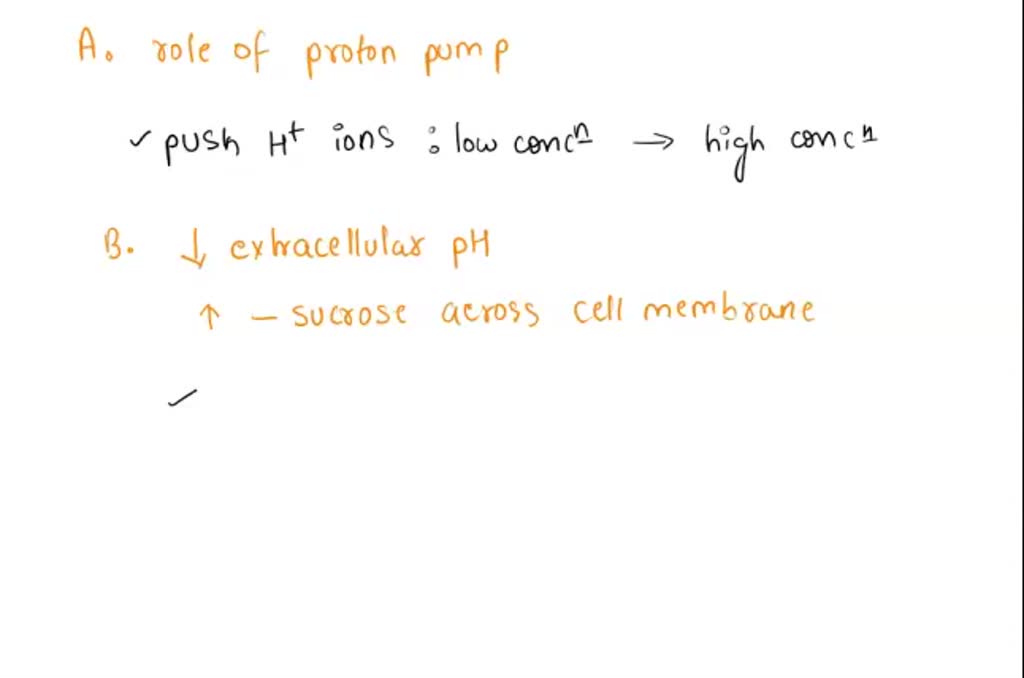 A. role of proton pump
✓ push H⁺ ions : low concⁿ → high concⁿ
B. ↓ extracellular pH
↑ – sucrose across cell membrane